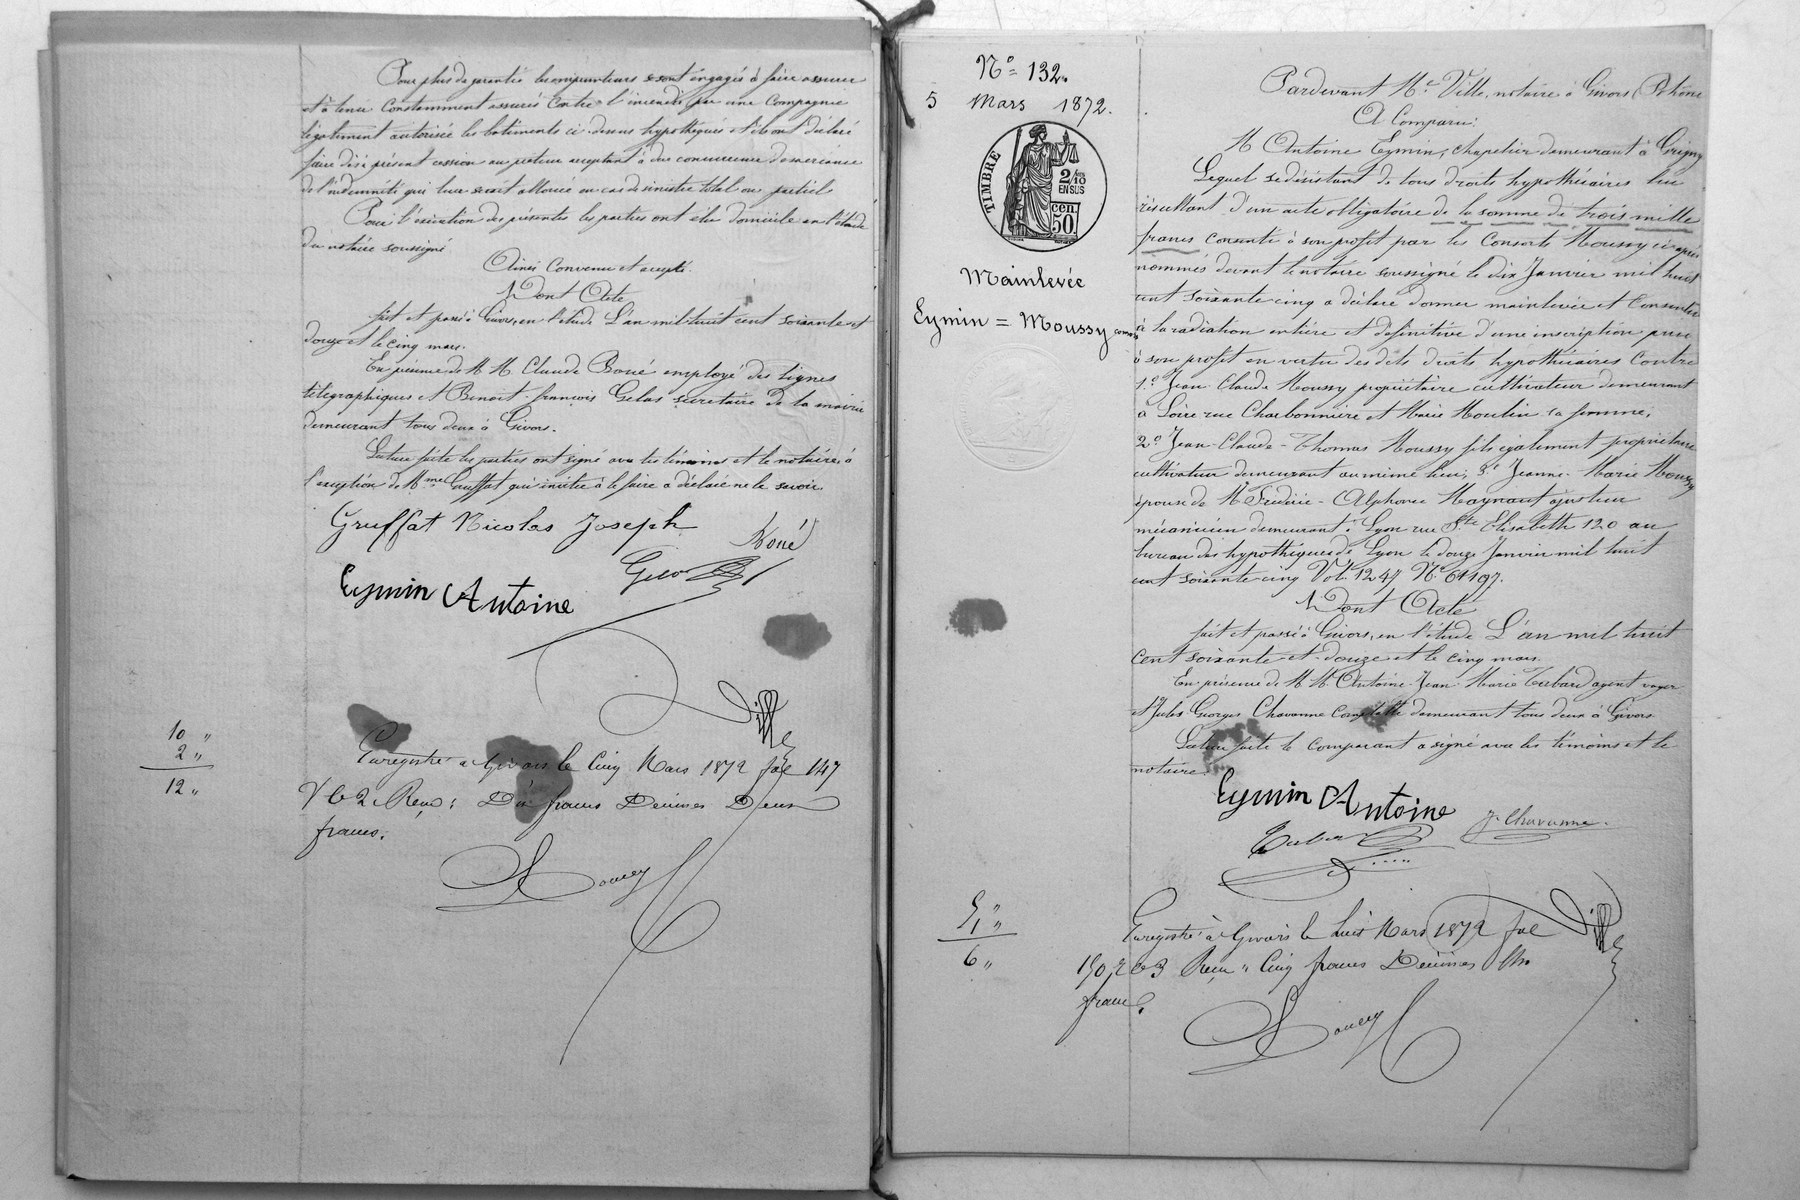 Pour plus de garantie les emprunteurs se sont engagés à faire assurer
et à tenir constamment assurés contre l'incendie par une Compagnie
légalement autorisée les bâtiments ci-dessus hypothéqués et ils ont déclaré
faire dès à présent cession au prêteur acceptant à due concurrence de sa créance
de l'indemnité qui leur serait allouée en cas de sinistre total ou partiel.
Pour l'exécution des présentes les parties ont élu domicile en l'étude
du notaire soussigné
Ainsi Convenu et accepté.
Dont Acte
fait et passé à Givors, en l'étude L'an mil huit cent soixante et
douze et le cinq mars.
En présence de M M. Claude Boué employé des lignes
télégraphiques et Benoit-françois Gelas secrétaire de la mairie
demeurant tous deux à Givors.
Lecture faite les parties ont signé avec les témoins et le notaire, à
l'exception de Mme Gruffat qui invitée à le faire a déclaré ne le savoir
Gruffat Nicolas Joseph
Boué
Eymin Antoine
Gelas
Ville
10 "
2 "
12 "
Enregistré à Givors le Cinq Mars 1872 fol 147
V C 2 Reçu : Dix francs Décimes Deux
francs.
No 132.
5 Mars 1872.
TIMBRE
2/10
EN SUS
50 cen.
Mainlevée
Eymin = Moussy
Pardevant Me Ville, notaire à Givors (Rhône
A Comparu:
M Antoine Eymin, chapelier demeurant à Grigny
Lequel se désistant de tous droits hypothécaires lui
résultant d'un acte obligatoire de la somme de trois mille
francs consentie à son profit par les Consorts Moussy ci-après
nommés devant le notaire soussigné le dix Janvier mil huit
cent soixante cinq a déclaré donner mainlevée et Consentir
à la radiation entière et définitive d'une inscription prise
à son profit en vertu des dits droits hypothécaires Contre
1o Jean-Claude Moussy propriétaire cultivateur demeurant
à Loire rue Charbonnière et Marie Moulin sa femme;
2o Jean-Claude-Thomas Moussy fils également propriétaire
cultivateur demeurant au même lieu; 3o Jeanne-Marie Moussy
épouse de M Frédéric-Alphonse Maynaut ajusteur
mécanicien demeurant à Lyon rue Ste Elisabeth 120 au
bureau des hypothèques de Lyon le douze Janvier mil huit
cent soixante cinq Vol. 1247 No 61197.
Dont Acte
fait et passé à Givors, en l'étude L'an mil huit
cent soixante et douze et le cinq mars.
En présence de M M. Antoine-Jean-Marie agent voyer
et Jules-Georges Chavanne Comptable demeurant tous deux à Givors
Lecture faite le comparant a signé avec les témoins et le
notaire.
Eymin Antoine
J. Chavanne.
Ville
5 "
1 "
6 "
Enregistré à Givors le huit Mars 1872 fol
150, V C 3 Reçu " Cinq francs Décimes Un
franc.